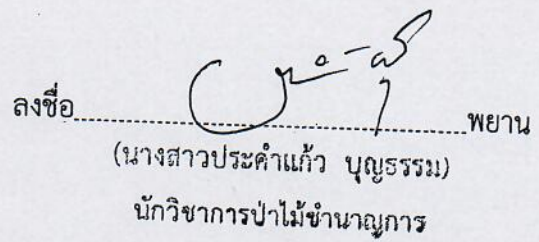 ลงชื่อ........................................................พยาน
(นางสาวประคำแก้ว บุญธรรม)
นักวิชาการป่าไม้ชำนาญการ